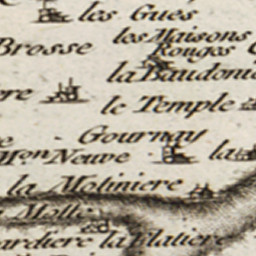 les Gues
les Maisons
Brosse
Rouges
la Baudoni
re
le Temple
Gournay
Mon Neuve
la
la Moliniere
Motte
ardiere la Filatiere